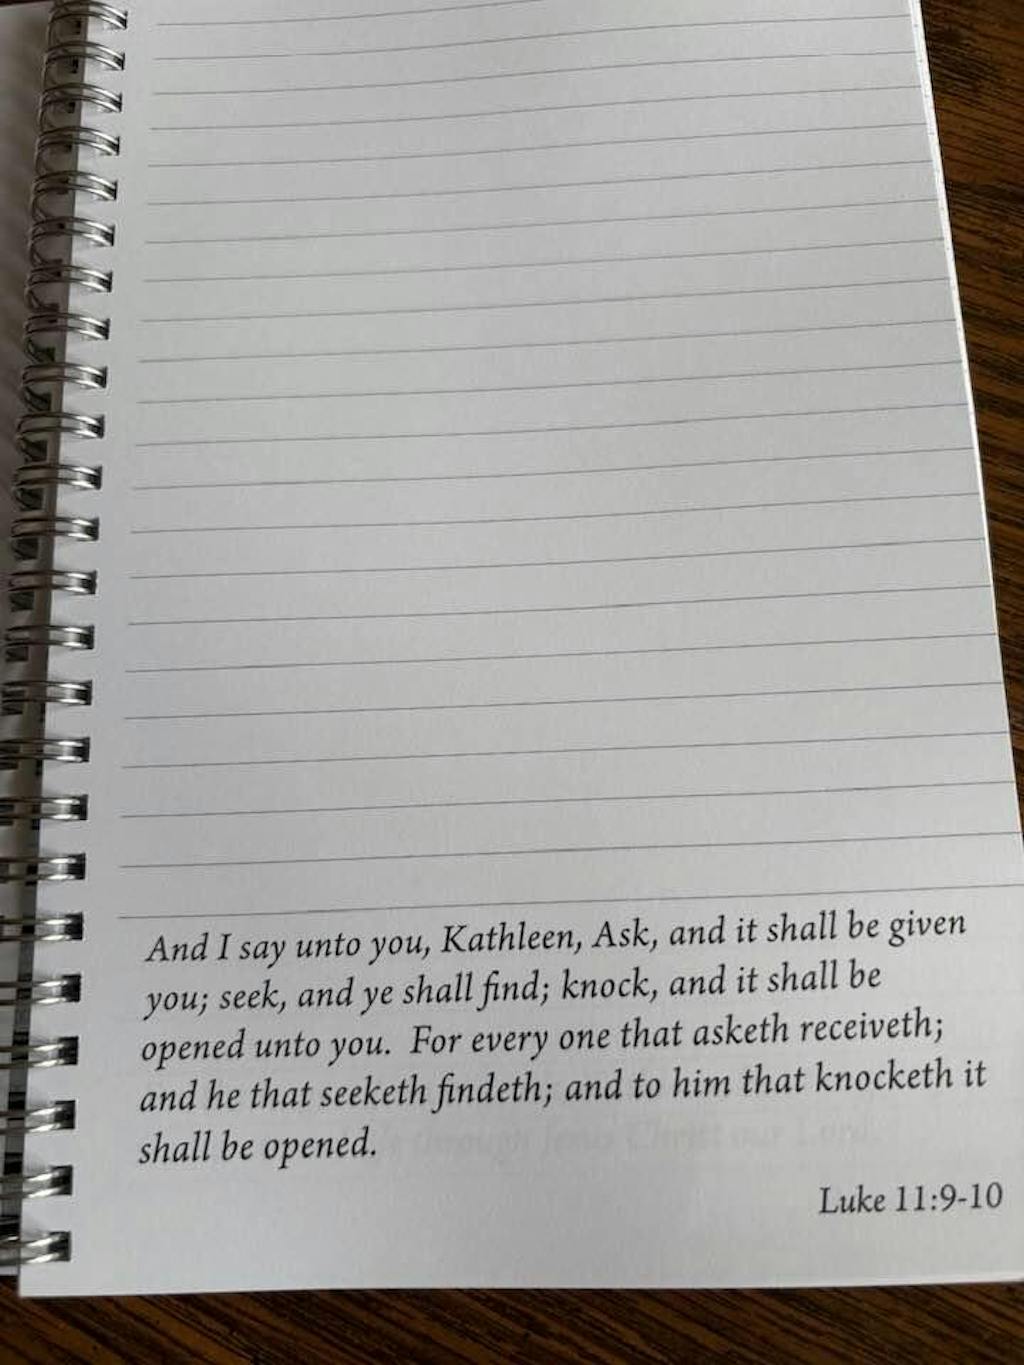 And I say unto you, Kathleen, Ask, and it shall be given
you; seek, and ye shall find; knock, and it shall be
opened unto you. For every one that asketh receiveth;
and he that seeketh findeth; and to him that knocketh it
shall be opened.
through Jesus Christ our Lord
Luke 11:9-10